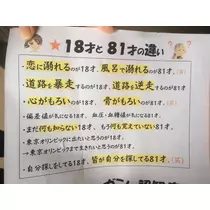 ★18才と81才の違い
・恋に溺れるのが18才、風呂で溺れるのが81才。(笑)
・道路を暴走するのが18才、道路を逆走するのが81才。
・心がもろいのが18才、骨がもろいのが81才。(笑)
・偏差値が気になるのが18才、血圧・血糖値が気になるのが81才。
・まだ何も知らない18才、もう何も覚えていない81才。
・東京オリンピックに出たいと思うのが18才、
→東京オリンピックまで生きたいと思うのが81才。
・自分探しをしてる18才、皆が自分を探してる81才。(笑)